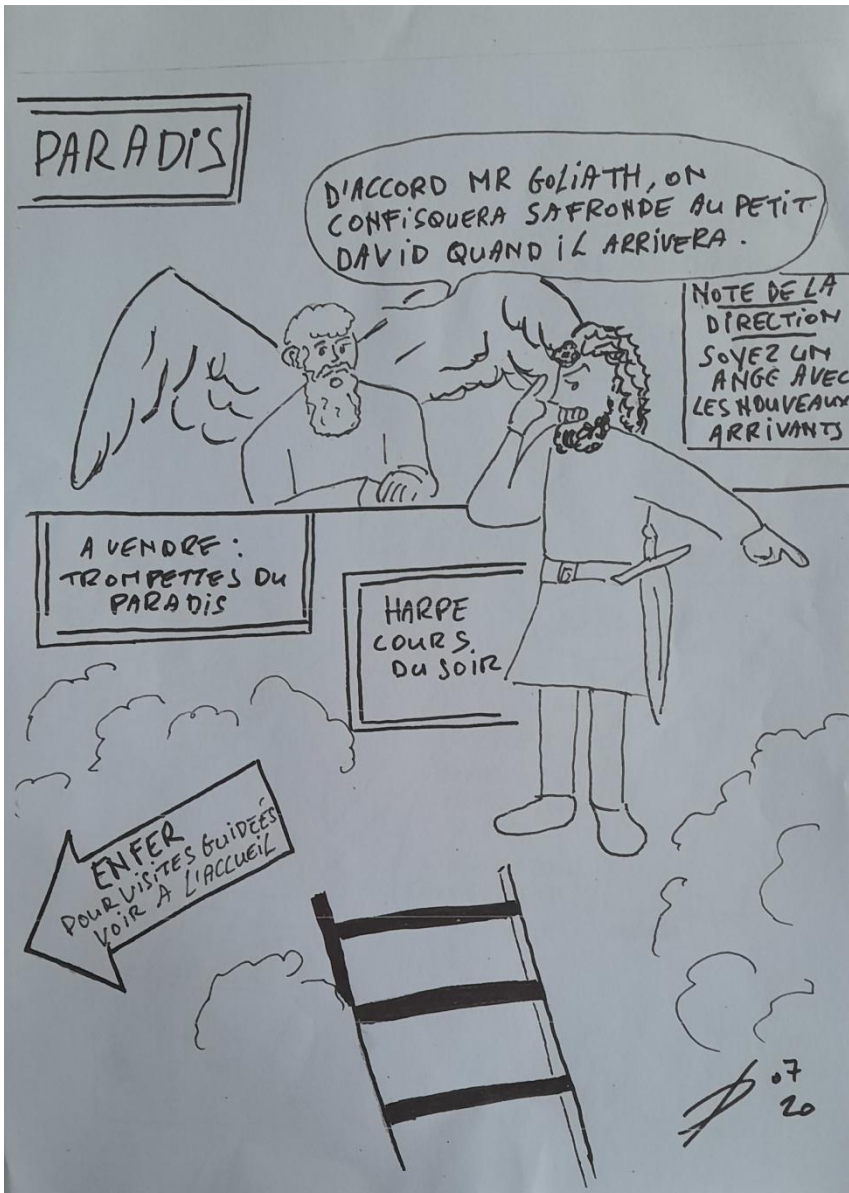 PARADIS
D'ACCORD MR GOLIATH, ON
CONFISQUERA SAFRONDE AU PETIT
DAVID QUAND IL ARRIVERA.
NOTE DE LA
DIRECTION
SOYEZ UN
ANGE AVEC
LES NOUVEAUX
ARRIVANTS
A VENDRE :
TROMPETTES DU
PARADIS
HARPE
COURS.
DU SOIR
G
ENFER
POUR VISITES GUIDÉES
VOIR A L'ACCUEIL
07
20